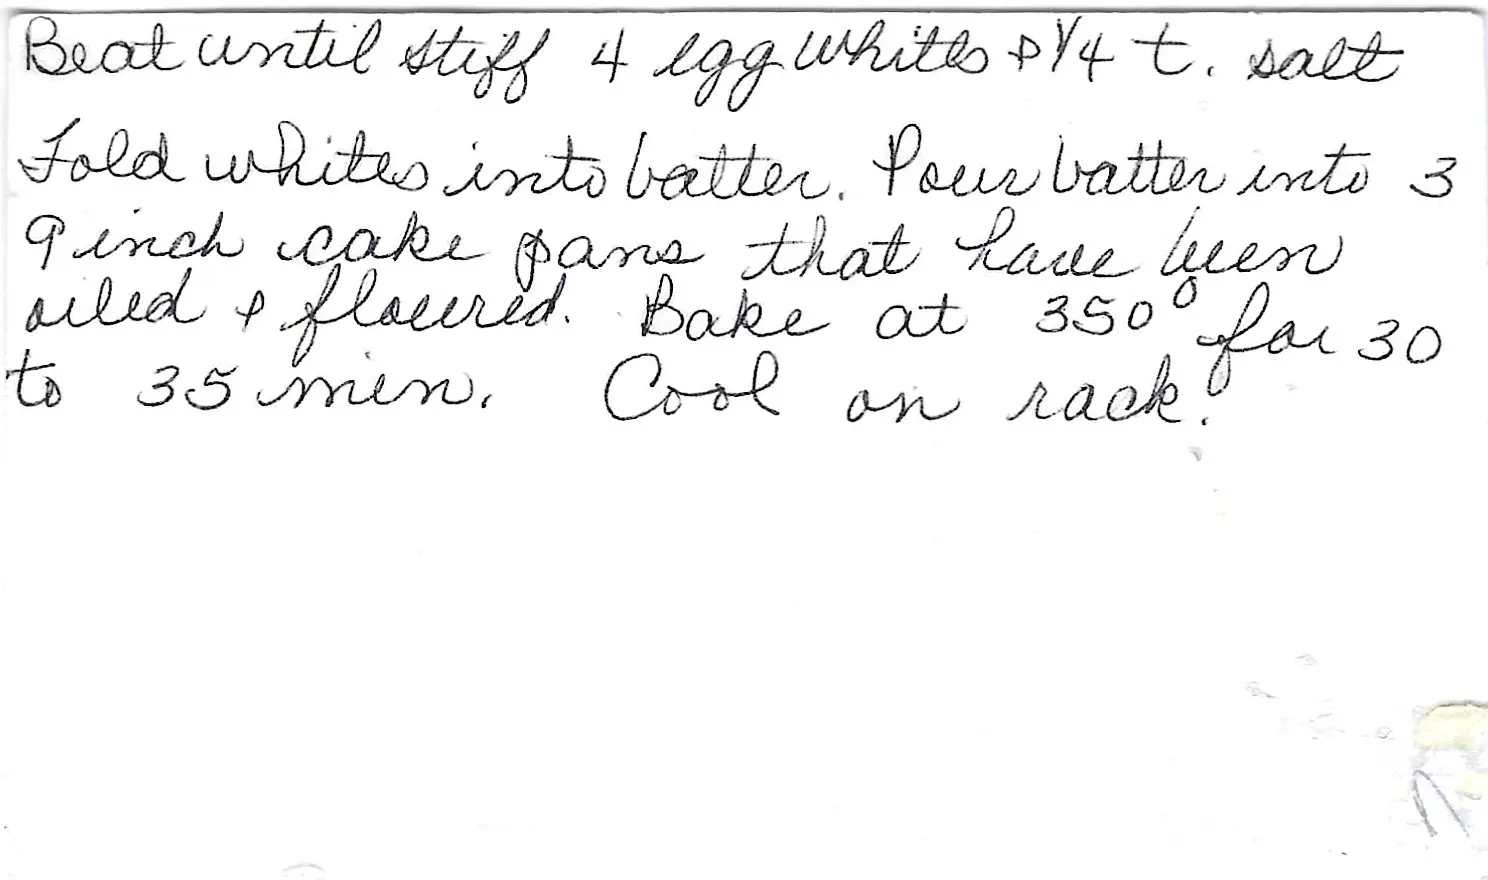 Beat until stiff 4 egg whites & 1/4 t. salt
Fold whites into batter. Pour batter into 3
9 inch cake pans that have been
oiled & floured. Bake at 350° for 30
to 35 min. Cool on rack.